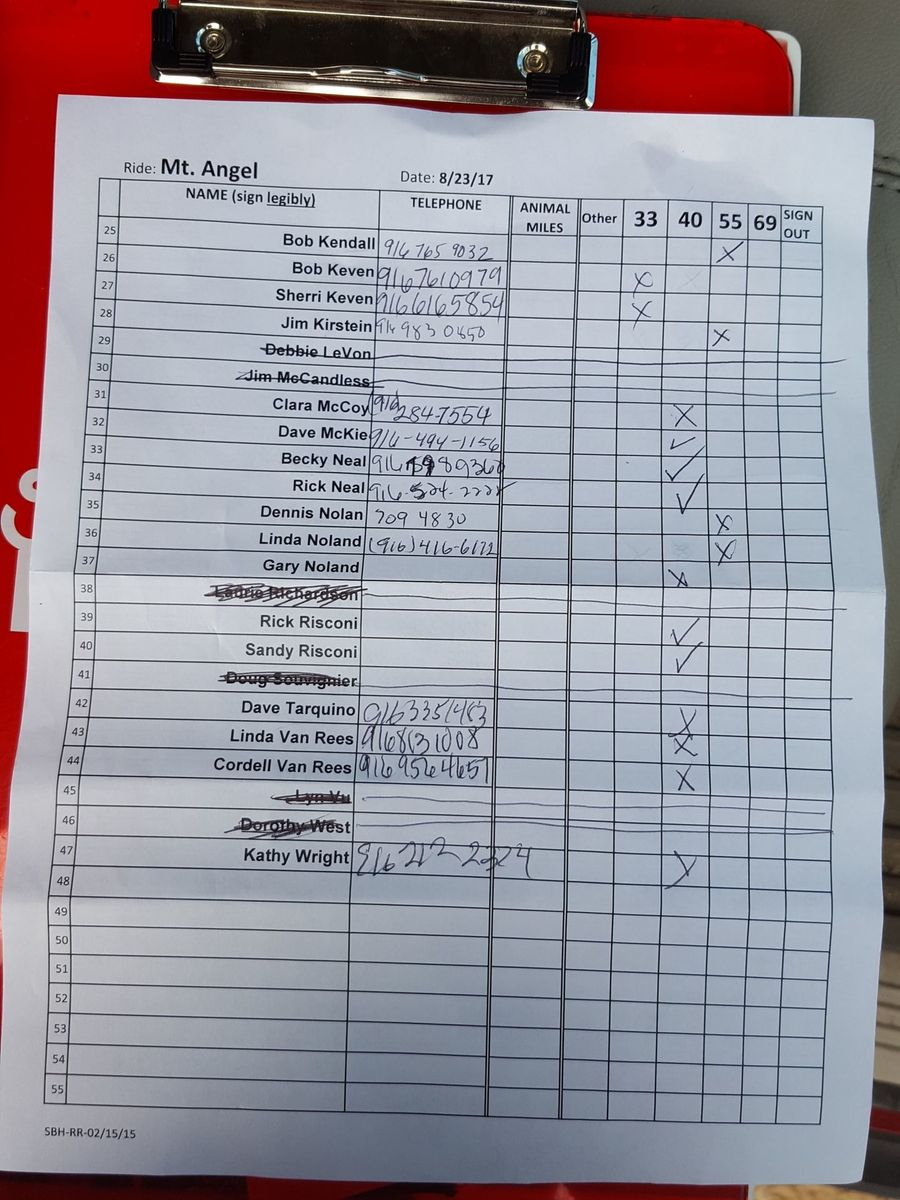 Ride: Mt. Angel Date: 8/23/17
NAME (sign legibly) TELEPHONE ANIMAL MILES Other 33 40 55 69 SIGN OUT
25 Bob Kendall 916 765 9032 X
26 Bob Keven 9167610979 X
27 Sherri Keven 9166165854 X
28 Jim Kirstein 916 983 0850 X
29 Debbie LeVon
30 Jim McCandless
31 Clara McCoy (916) 284-7554 X
32 Dave McKie 916-494-1156 ✓
33 Becky Neal 916 ✓
34 Rick Neal ✓
35 Dennis Nolan 709 4830 X
36 Linda Noland (916) 416-6172 X
37 Gary Noland X
38 Laurie Richardson
39 Rick Risconi ✓
40 Sandy Risconi ✓
41 Doug Souvignier
42 Dave Tarquino X
43 Linda Van Rees 9168131008 X
44 Cordell Van Rees 9169564651 X
45 Lyn Vu
46 Dorothy West
47 Kathy Wright 916 212 2324 X
48
49
50
51
52
53
54
55
SBH-RR-02/15/15